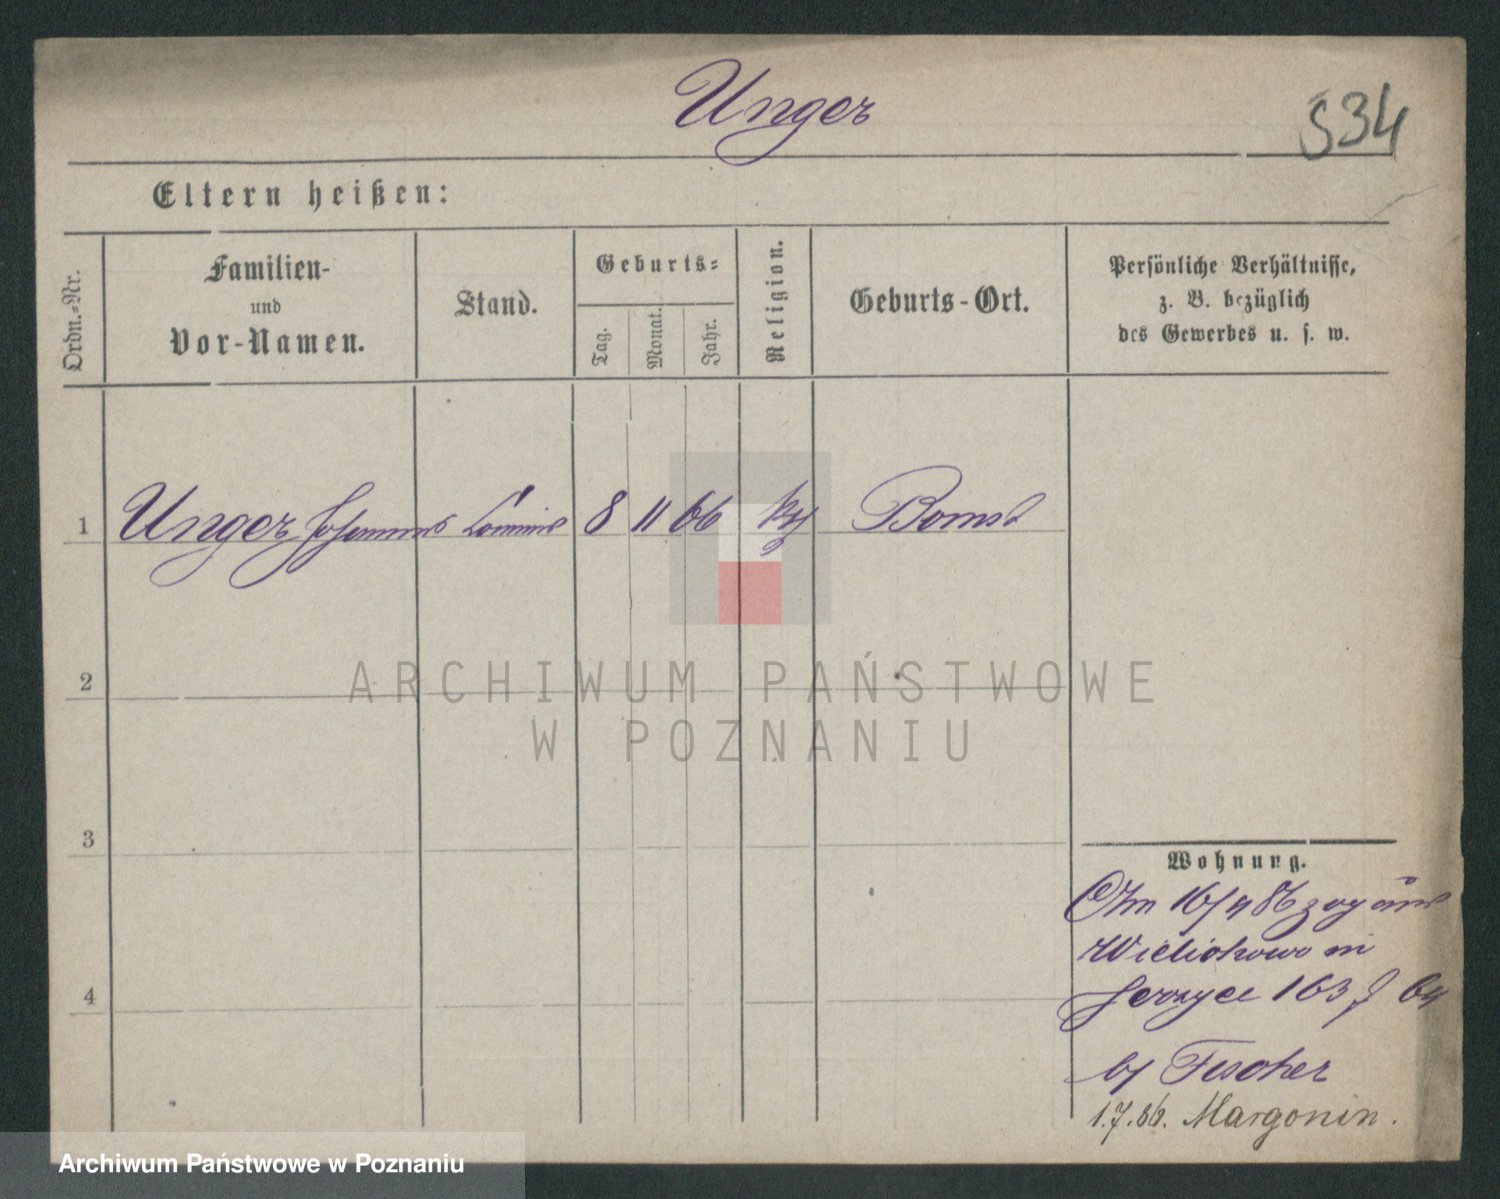 Unger
534
Eltern heißen:
Ordn.-Nr.
Familien-
und
Vor-Namen.
Stand.
Geburts-
Tag.
Monat.
Jahr.
Religion.
Geburts-Ort.
Persönliche Verhältnisse,
z. B. bezüglich
des Gewerbes u. s. w.
1 Unger Johannes Commis 8 11 66 Bomst
2
ARCHIWUM PAŃSTWOWE
W POZNANIU
3
4
Wohnung.
Am 16/4 86 zog aus
Wielichowo in
Jerzyce 163
by Fischer
1.7.86. Margonin.
Archiwum Państwowe w Poznaniu